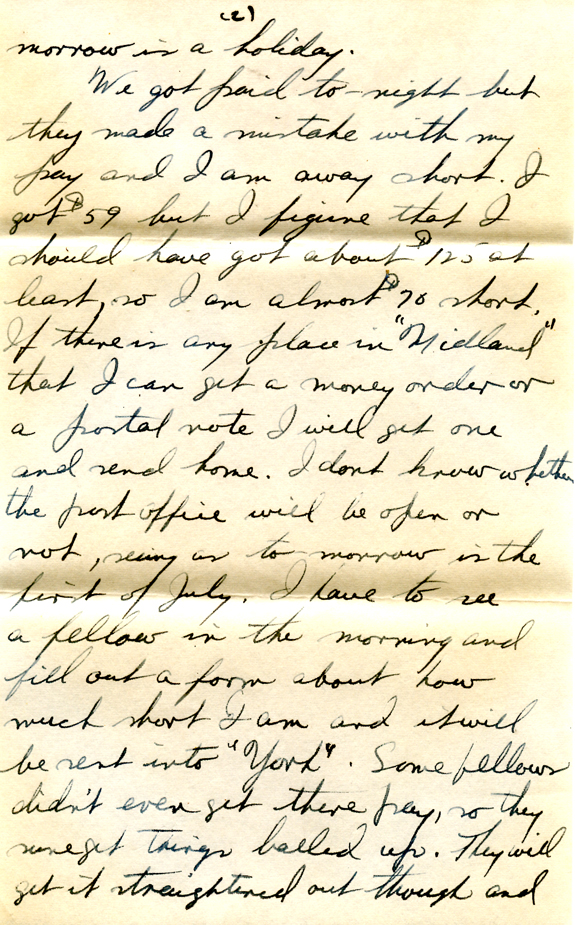 (2)
morrow is a holiday.
We got paid to-night but
they made a mistake with my
pay and I am away short. I
got $59 but I figure that I
should have got about $125 at
least, so I am almost $70 short.
If there is any place in "Midland"
that I can get a money order or
a postal note I will get one
and send home. I dont know whether
the post office will be open or
not, seing as to-morrow is the
first of July. I have to see
a fellow in the morning and
fill out a form about how
much short I am and it will
be sent into "York". Some fellows
didn't even get there pay, so they
sure get things balled up. They will
get it straightened out though and